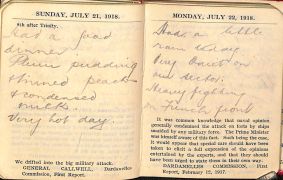 SUNDAY, JULY 21, 1918.
8th after Trinity.
Had a good
dinner.
Plum pudding
stewed peach
& condensed
milk.
Very hot day.
We drifted into the big military attack.
GENERAL CALLWELL, Dardanelles
Commission, First Report.
MONDAY, JULY 22, 1918.
Had a little
rain today
Very quiet on
our sector.
Heavy fighting
on French front
It was common knowledge that naval opinion
generally condemned the attack on forts by ships
unaided by any military force. The Prime Minister
was himself aware of this fact. Such being the case,
it would appear that special care should have been
taken to elicit a full expression of the opinions
entertained by the experts, and that they should
have been urged to state them in their own way.
DARDANELLES COMMISSION, First
Report, February 12, 1917.